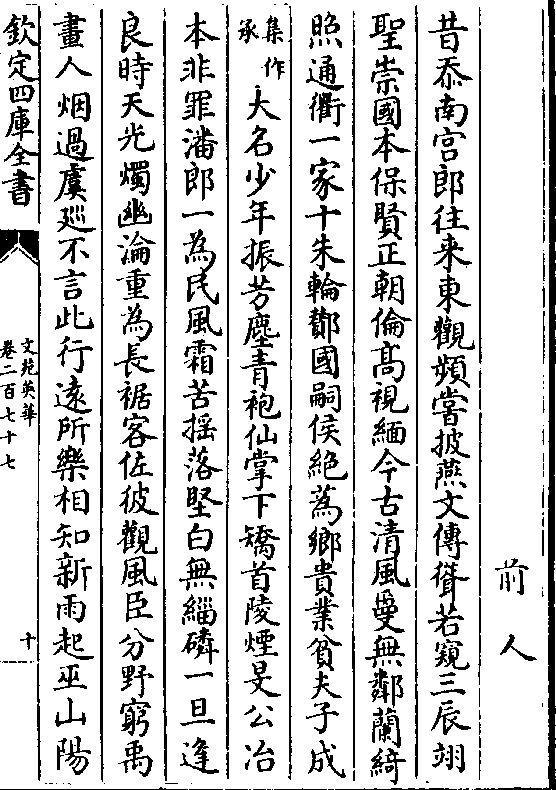 前人
昔忝南宫郎往来東觀頻嘗披燕文傳聳若窺三辰翊
聖崇國本保賢正朝倫髙視緬今古清風夐無鄰蘭綺
照通衢一家十朱輪酇國嗣侯絶蔿鄉貴業貧夫子成
集作
承
大名少年振芳塵青袍仙掌下矯首陵煙旻公冶
本非罪潘郎一為民風霜苦揺落堅白無緇磷一旦逢
良時天光燭幽淪重為長裾客佐彼觀風臣分野窮禹
畫人烟過虞廵不言此行遠所樂相知新雨起巫山陽
欽定四庫全書
文苑英華
卷二百七十七
十